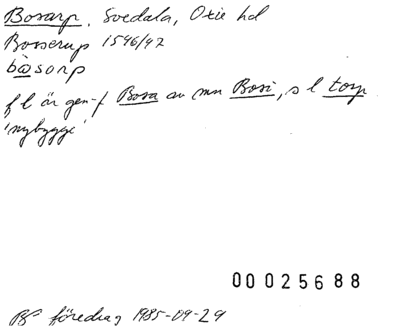 Bosarp. Svedala, Oxie hd
Bosserup 1546/47
bɷsorp
f l är gen-f Bosa av mn Bosi, s l torp
'nybygge'
00025688
BP föredrag 1985-09-29